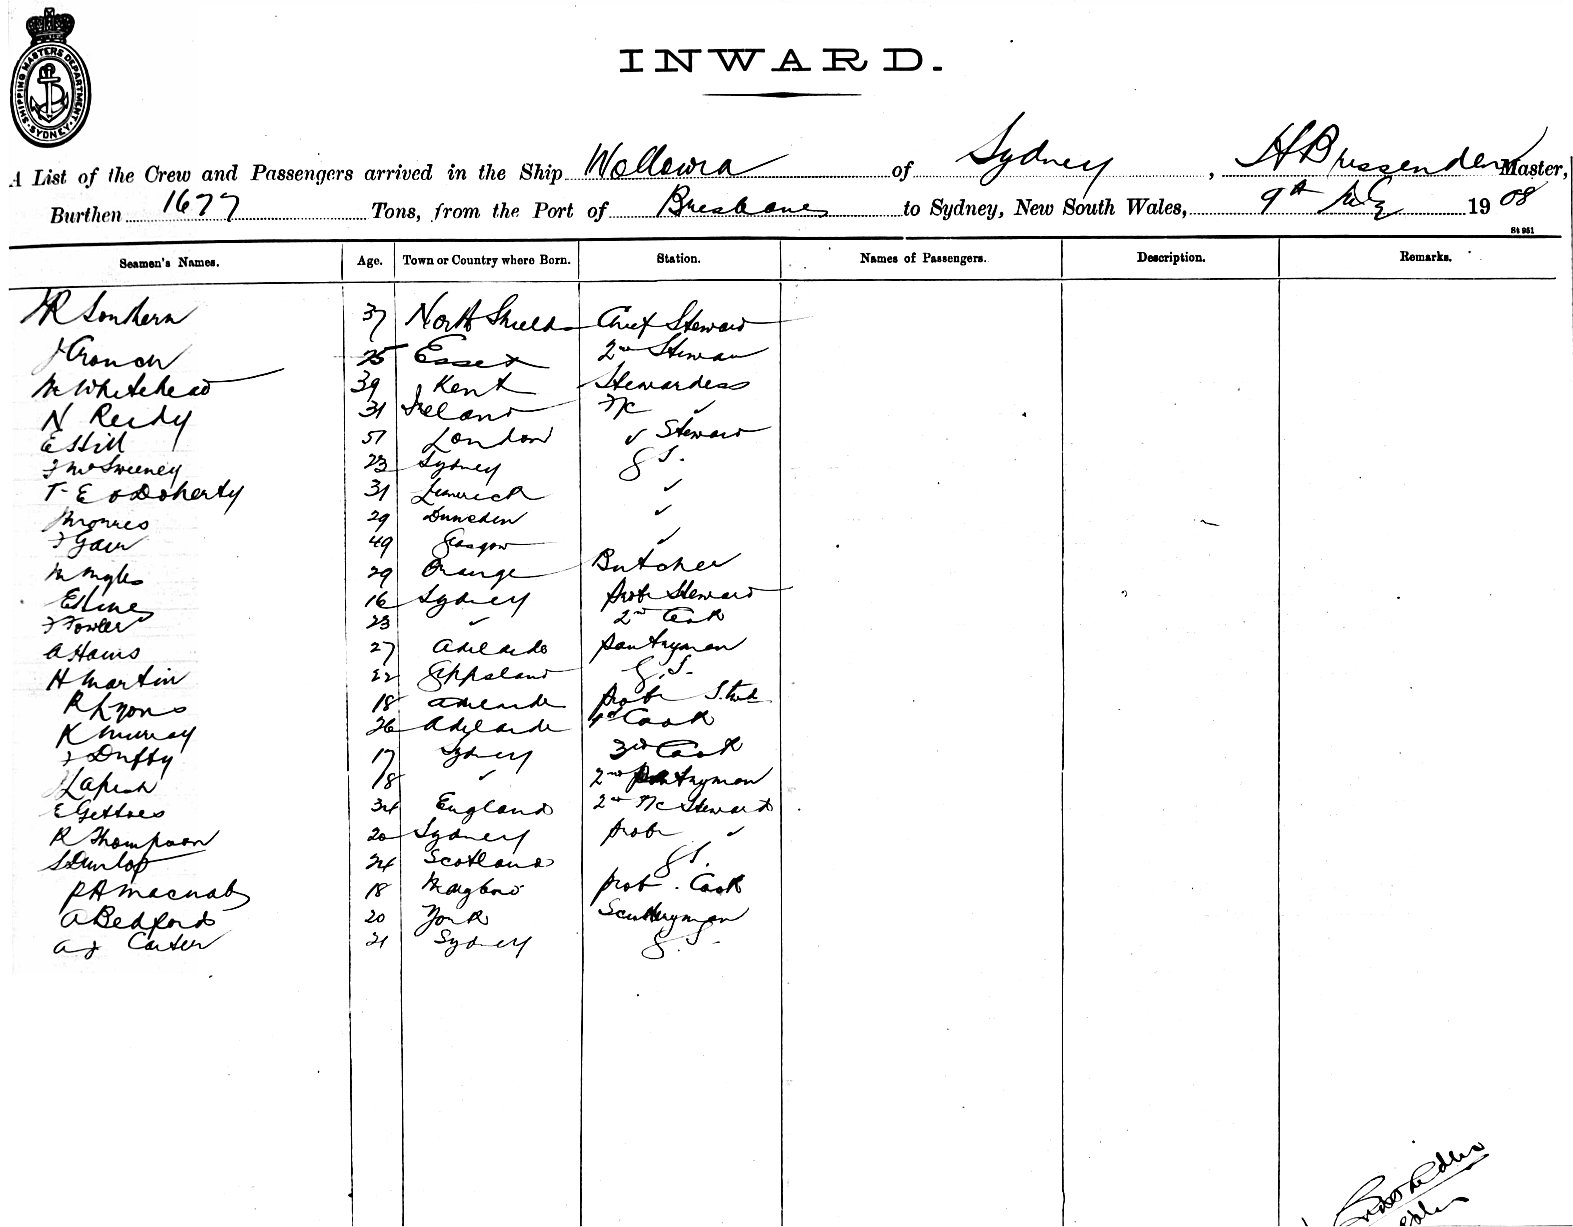 SHIPPING MASTERS DEPARTMENT SYDNEY
INWARD.
A List of the Crew and Passengers arrived in the Ship Wollowra of Sydney, H Brissenden Master,
Burthen 1677 Tons, from the Port of Brisbane to Sydney, New South Wales, 9th 1908
St 951
Seamen's Names. Age. Town or Country where Born. Station. Names of Passengers. Description. Remarks.
R Southern 37 North Shields Chief Steward
J Crouch 25 Essex 2nd Steward
M Whitehead 39 Kent Stewardess
N Reidy 31 Ireland F/C ✓
E Hill 51 London ✓ Steward
J McSweeney 23 Sydney G S.
T. E O Doherty 31 Limerick ✓
29 Dunedin ✓
49 Glasgow ✓
M Myles 29 Orange Butcher
E Hines 16 Sydney prob Steward
F Fowler 23 ✓ 2nd Cook
A Harris 27 Adelaide pantryman
H Martin 22 Gippsland G.S.
R Lyons 18 Adelaide prob Stwd
K Murray 26 Adelaide 4th Cook
J Duffy 17 Sydney 3rd Cook
18 ✓ 2nd Pantryman
E 34 England 2nd F/C Steward
R Thompson 20 Sydney prob ✓
S Dunlop 24 Scotland G S.
P A Macnab 18 Mayboro prob. Cook
A Bedford 20 York Sculleryman
A J Carter 21 Sydney G.S.